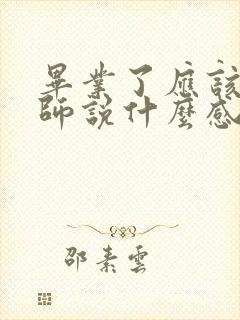 畢業了應該
師說什麼感
邵素雲